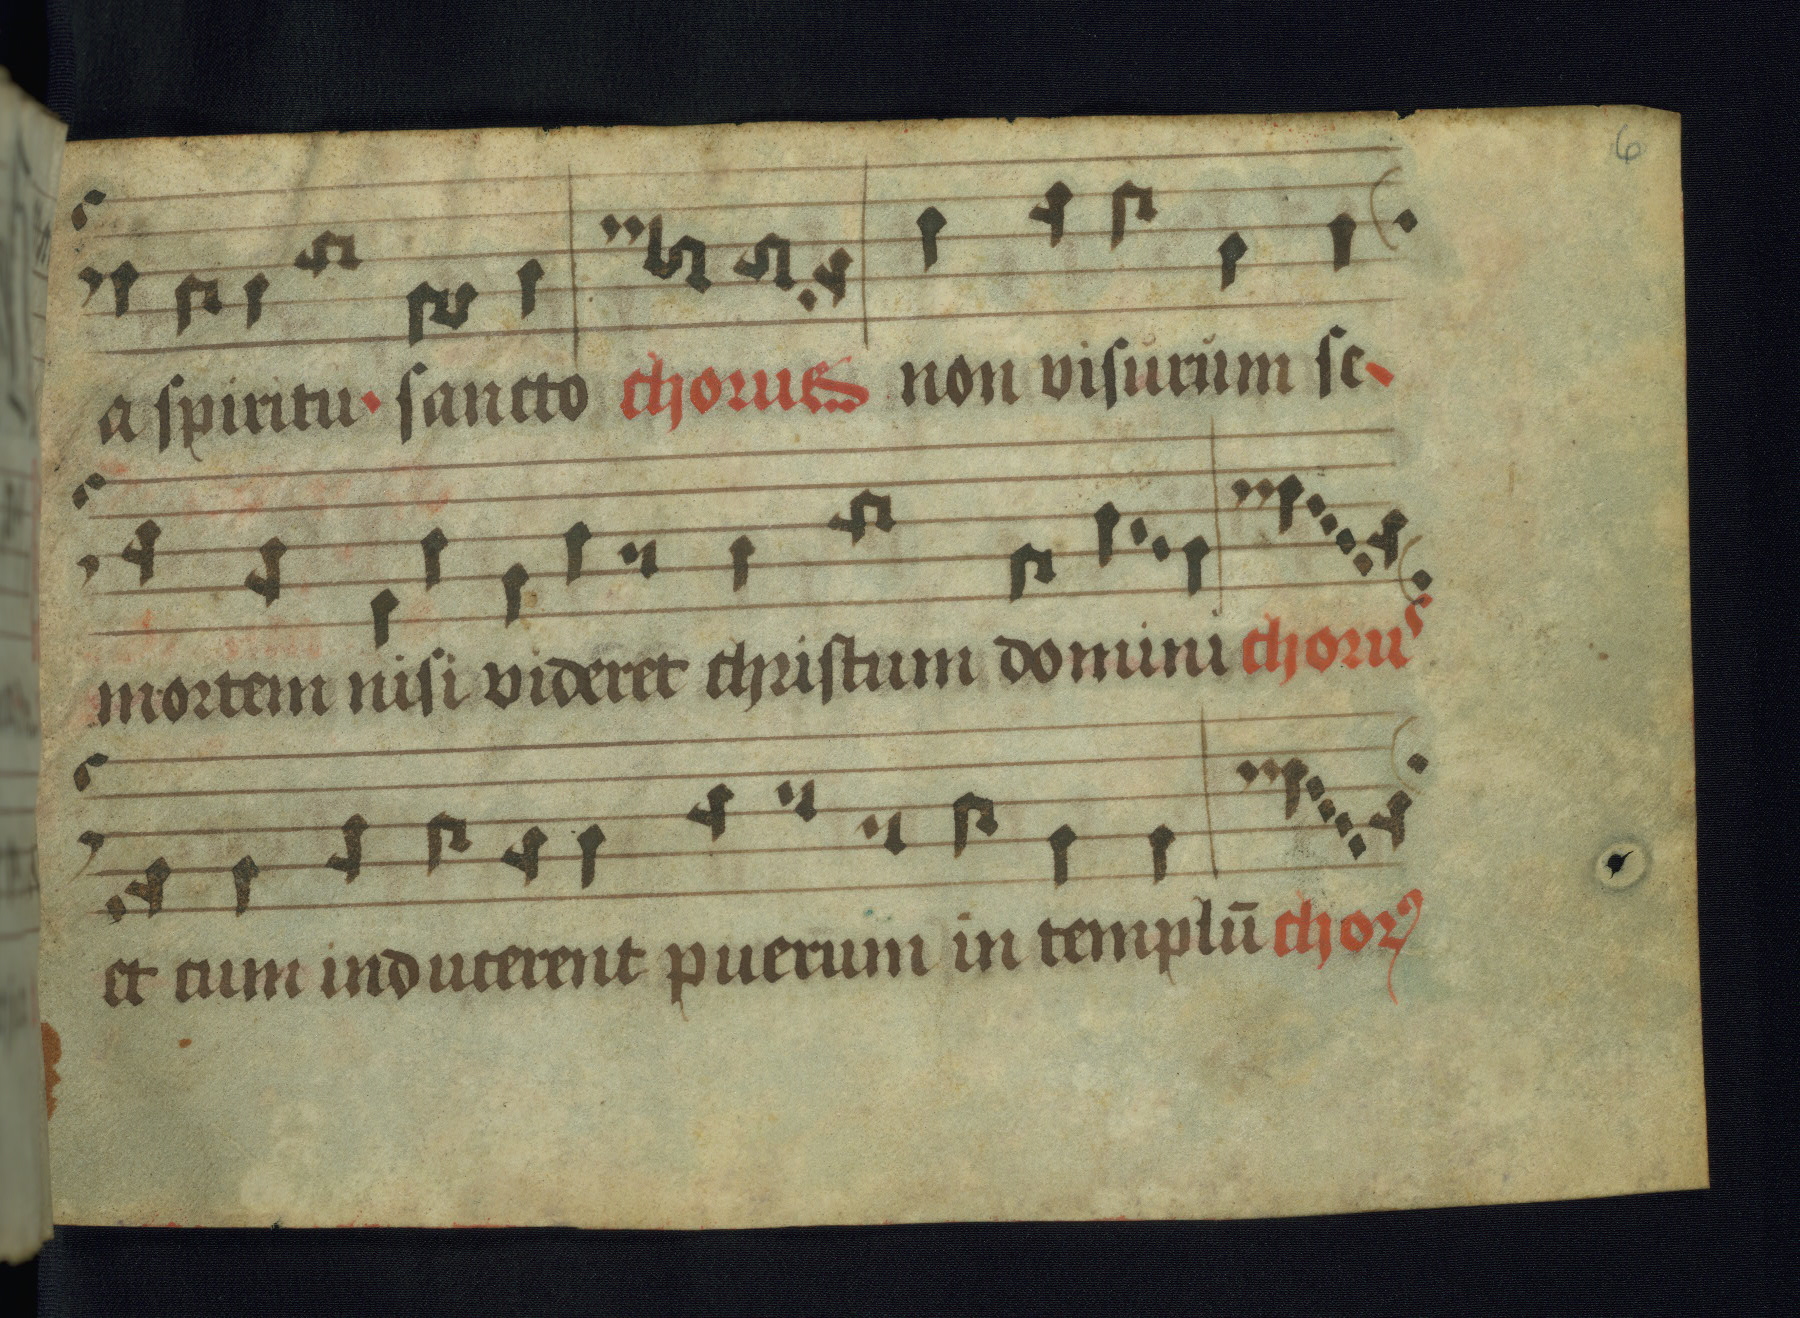 6
a spiritu sancto chorus non visurum se
mortem nisi videret christum domini chorus
et cum inducerent puerum in templū chorꝯ